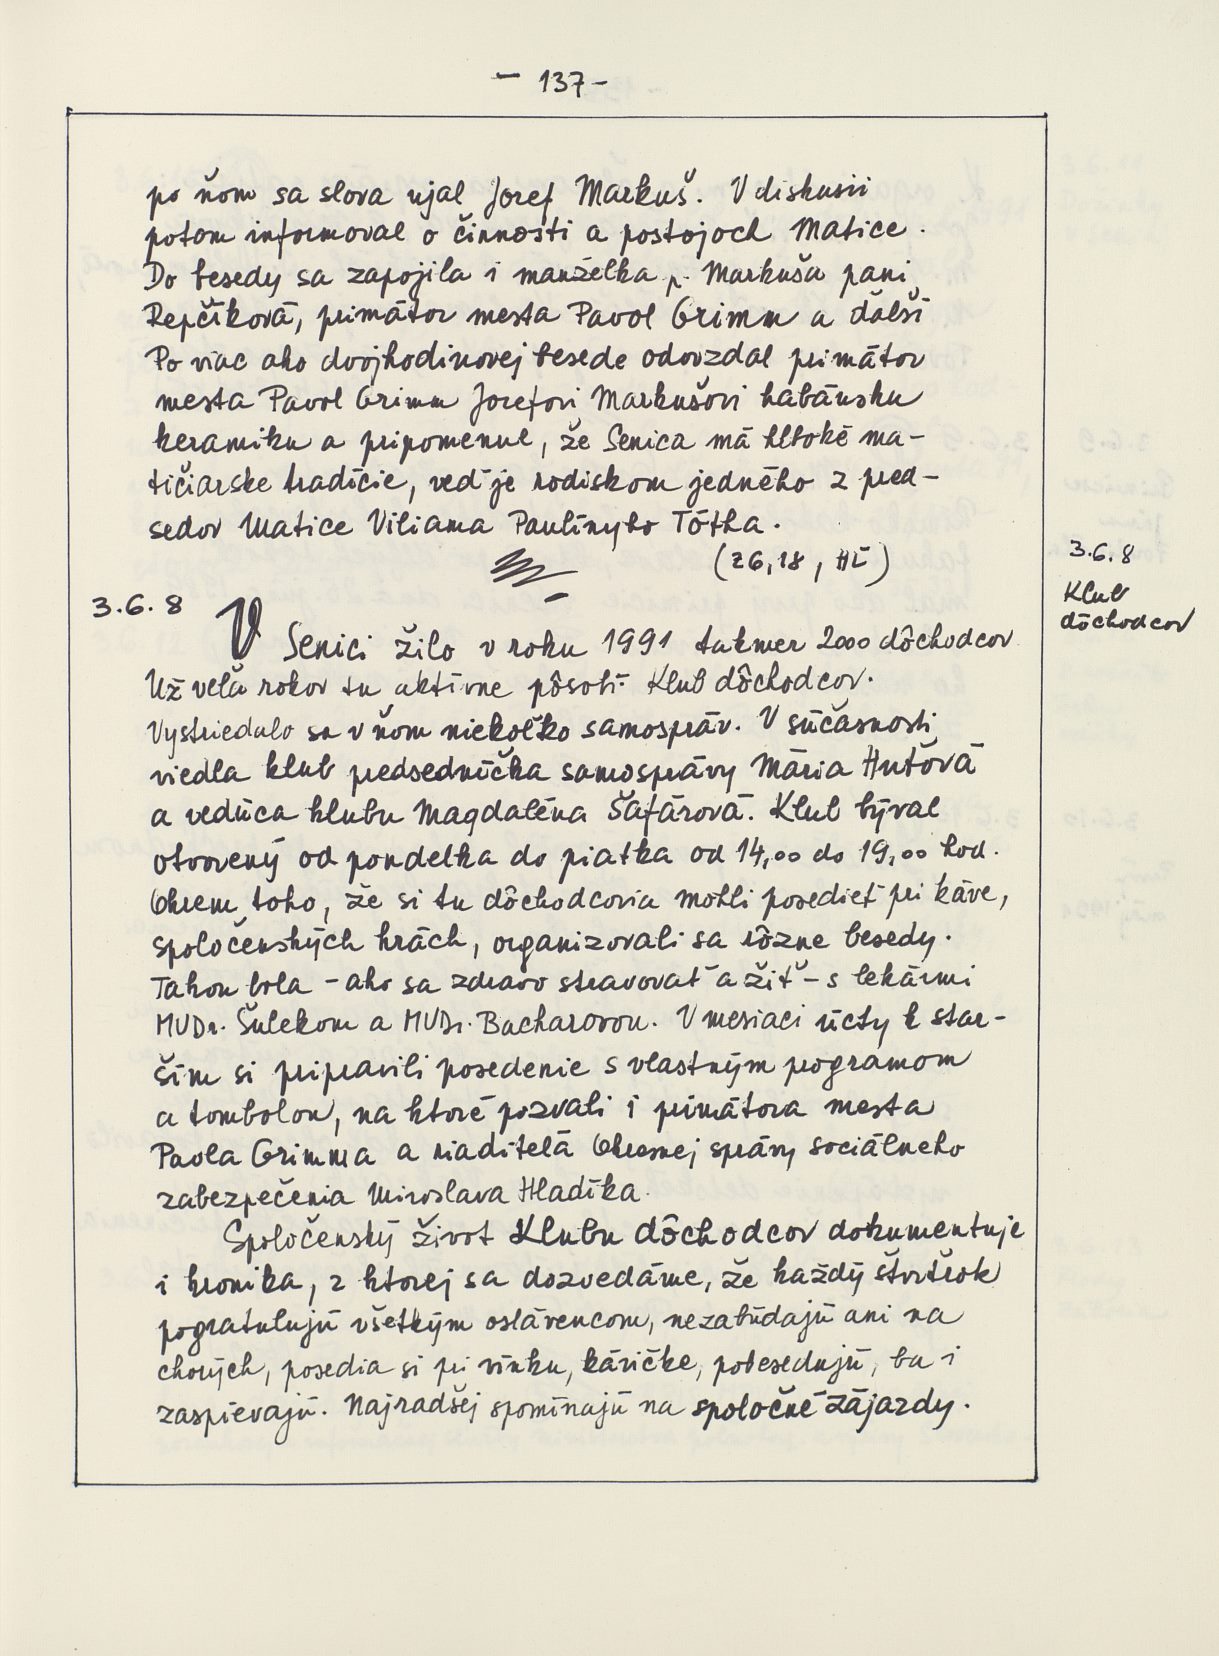 - 137 -
po ňom sa slova ujal Jozef Markuš. V diskusii
potom informoval o činnosti a postojoch Matice.
Do besedy sa zapojila i manželka p. Markuša pani
Repčíková, primátor mesta Pavol Grimm a ďalší
Po viac ako dvojhodinovej besede odovzdal primátor
mesta Pavol Grimm Jozefovi Markušovi habánsku
keramiku a pripomenul, že Senica má hlboké ma-
tičiarske tradície, veď je rodiskom jedného z pred-
sedov Matice Viliama Paulínyho Tótha.
(26,18, HĽ)
3.6.8
Klub
dôchodcov
3.6.8 V Senici žilo v roku 1991 takmer 2000 dôchodcov
Už veľa rokov tu aktívne pôsobí Klub dôchodcov.
Vystriedalo sa v ňom niekoľko samospráv. V súčasnosti
viedla klub predsedníčka samosprávy Mária Huťová
a vedúca klubu Magdaléna Šafárová. Klub býval
otvorený od pondelka do piatka od 14,00 do 19,00 hod.
Okrem toho, že si tu dôchodcovia mohli posedieť pri káve,
spoločenských hrách, organizovali sa rôzne besedy.
Takou bola - ako sa zdravo stravovať a žiť - s lekármi
MUDr. Šulekom a MUDr. Bacharovou. V mesiaci úcty k star-
ším si pripravili posedenie s vlastným programom
a tombolou, na ktoré pozvali i primátora mesta
Pavla Grimma a riaditeľa Okresnej správy sociálneho
zabezpečenia Miroslava Hladíka.
Spoločenský život Klubu dôchodcov dokumentuje
i kronika, z ktorej sa dozvedáme, že každý štvrťrok
pogratulujú všetkým oslávencom, nezabúdajú ani na
chorých, posedia si pri vínku, kávičke, pobesedujú, ba i
zaspievajú. Najradšej spomínajú na spoločné zájazdy.